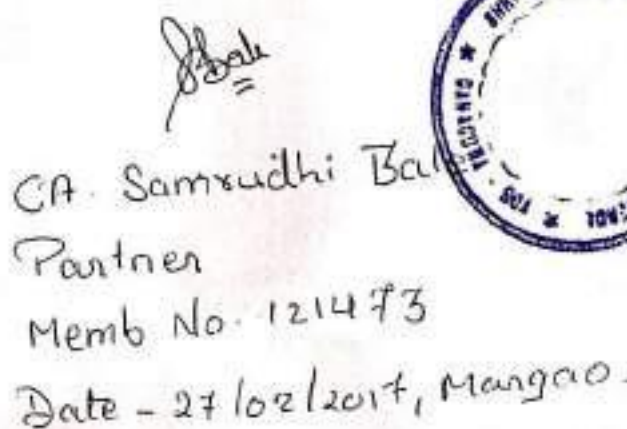 CA. Samrudhi Bal
Partner
Memb No. 121473
Date - 27/02/2017, Margao.